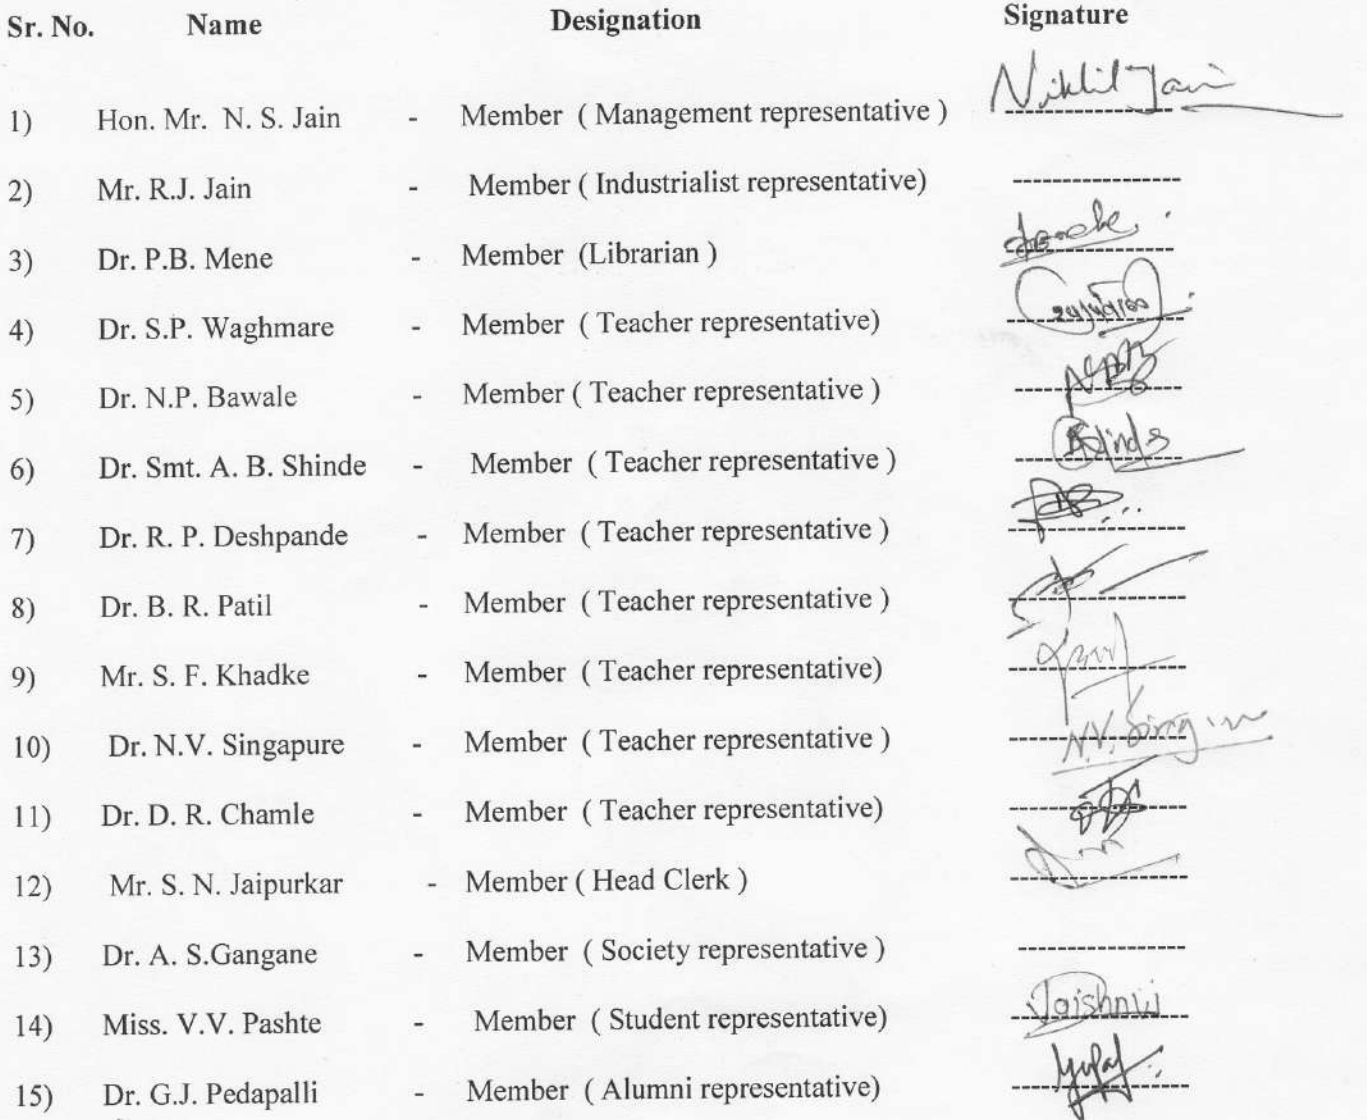 Sr. No. Name Designation Signature
1) Hon. Mr. N. S. Jain - Member ( Management representative ) Nikhil Jain
2) Mr. R.J. Jain - Member ( Industrialist representative) ----------------
3) Dr. P.B. Mene - Member (Librarian ) ----------------
4) Dr. S.P. Waghmare - Member ( Teacher representative) ----------------
5) Dr. N.P. Bawale - Member ( Teacher representative ) ----------------
6) Dr. Smt. A. B. Shinde - Member ( Teacher representative ) ----------------
7) Dr. R. P. Deshpande - Member ( Teacher representative ) ----------------
8) Dr. B. R. Patil - Member ( Teacher representative ) ----------------
9) Mr. S. F. Khadke - Member ( Teacher representative) ----------------
10) Dr. N.V. Singapure - Member ( Teacher representative ) ----------------
11) Dr. D. R. Chamle - Member ( Teacher representative) ----------------
12) Mr. S. N. Jaipurkar - Member ( Head Clerk ) ----------------
13) Dr. A. S.Gangane - Member ( Society representative ) ----------------
14) Miss. V.V. Pashte - Member ( Student representative) Vaishnvi
15) Dr. G.J. Pedapalli - Member ( Alumni representative) ----------------